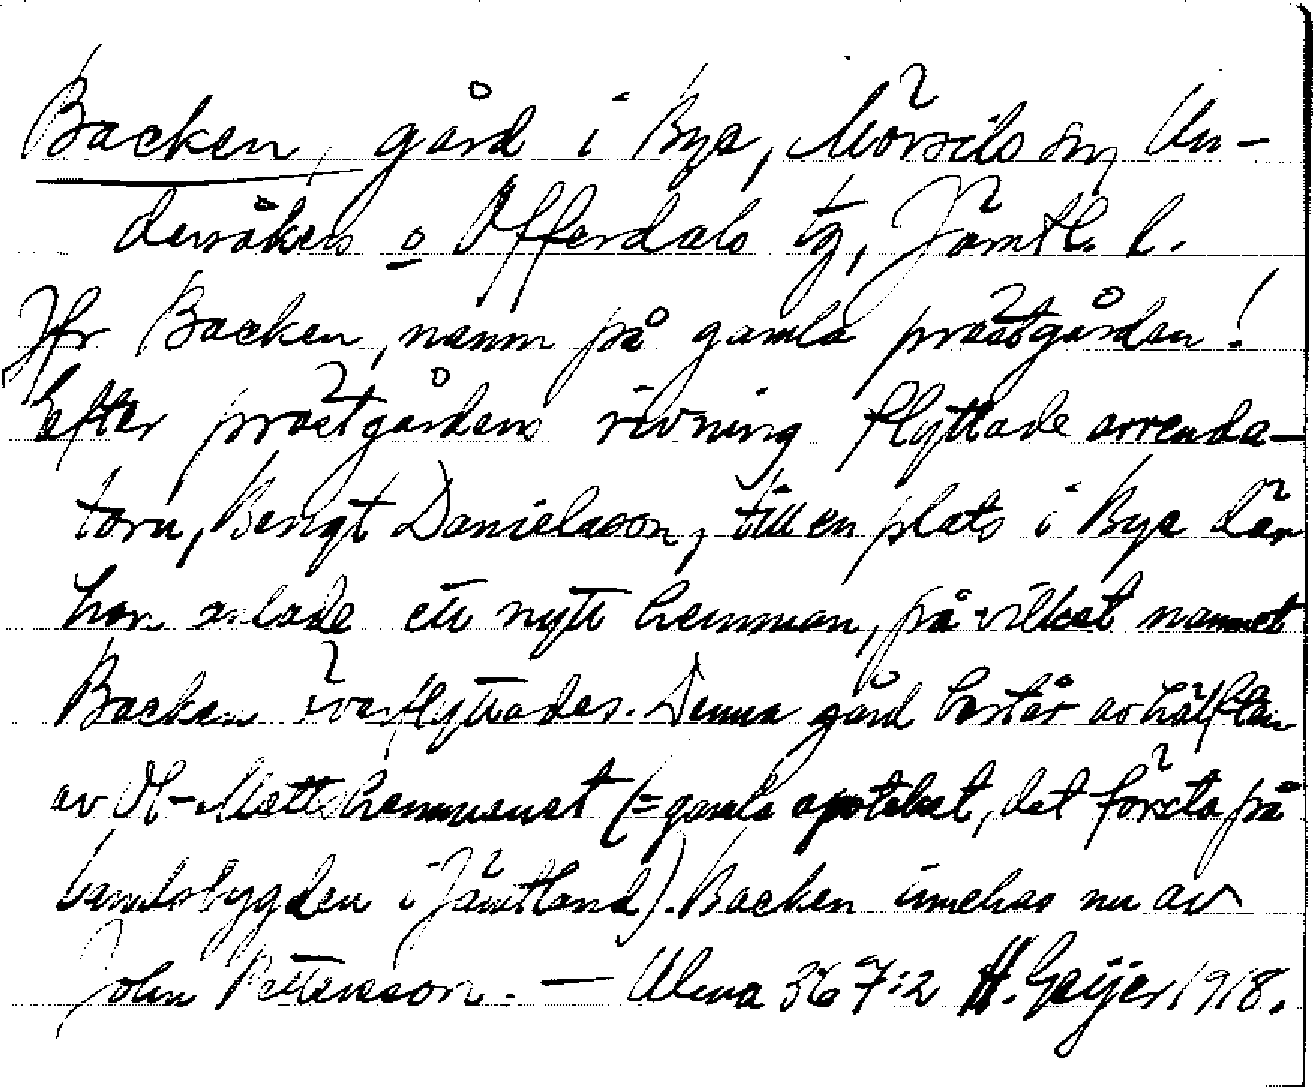 Backen, gård i Bye, Mörsils sn, Un-
dersåkers o Offerdals tg, Jämtl. l.
Jfr Backen, namn på gamla prästgården!
Efter prästgårdens rivning flyttade arrenda-
torn, Bengt Danielsson, till en plats i Bye där
han anlade ett nytt hemman, på vilket namnet
Backen överflyttades. Denna gård består av hälften
av Ol-Mattshemmanet (= gamla apoteket, det första på
landsbygden i Jämtland). Backen innehas nu av
John Pettersson. — Ulma 367:2 H. Geijer 1918.